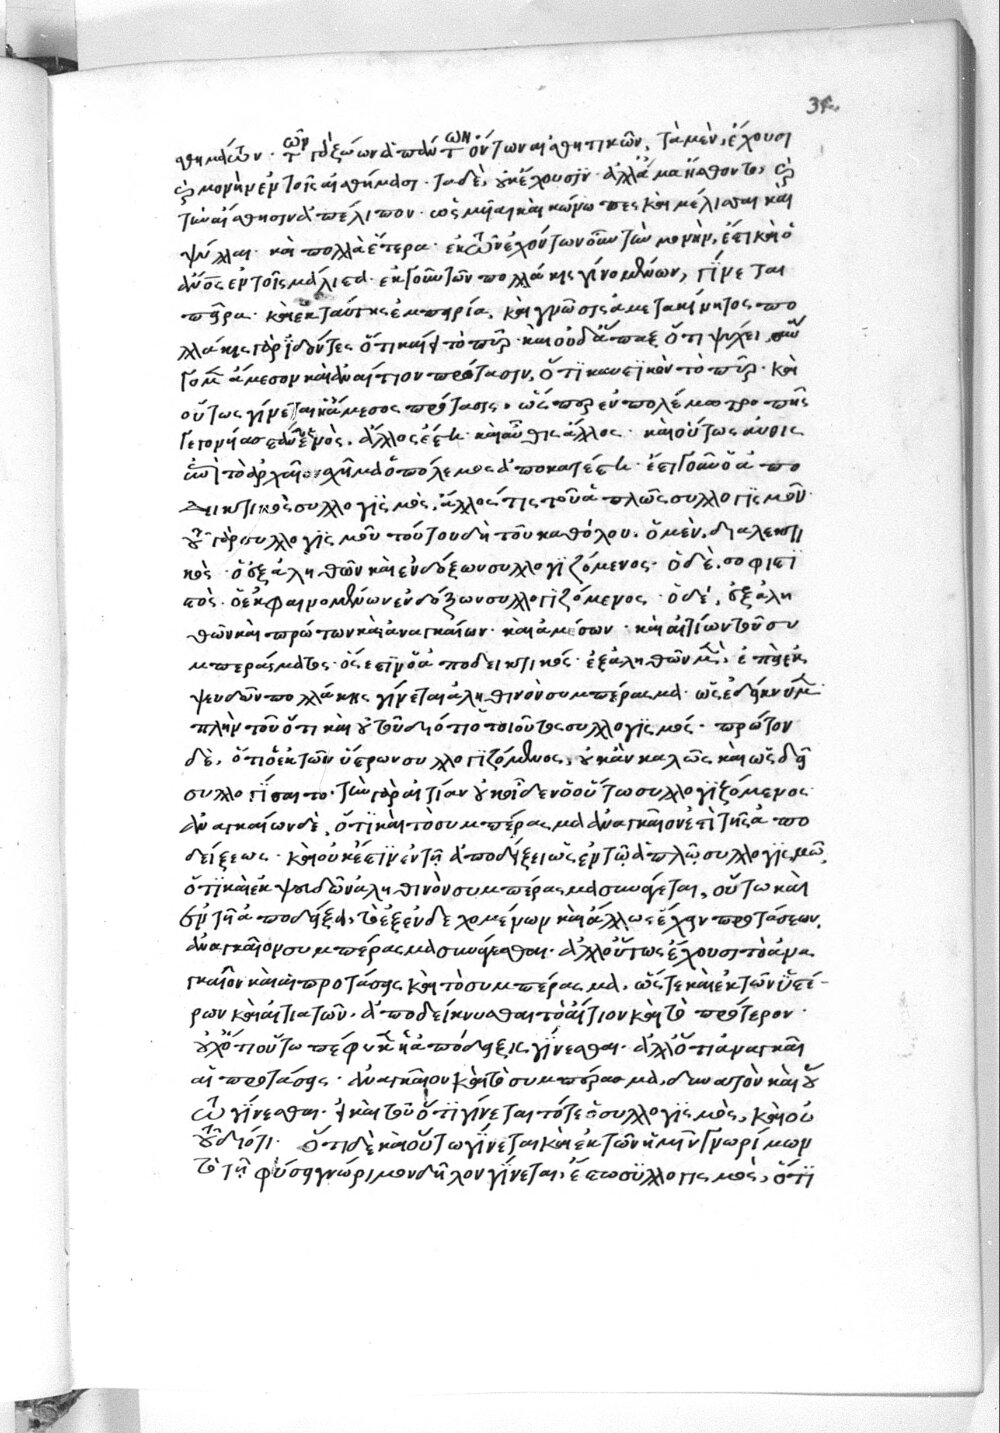 αἰσθημάτων · τῶν γὰρ ζώων ἁπάντων ὄντων αἰσθητικῶν, τὰ μὲν, ἔχουσι
μονὴν ἐν τοῖς αἰσθήμασι · τὰ δὲ, οὐκ ἔχουσιν · ἀλλ' ἅμα ᾔσθοντο, καὶ
τὴν αἴσθησιν ἀπέλιπον · ὡς μυῖαι καὶ κώνωπες καὶ μέλισσαι καὶ
ψύλλαι · καὶ πολλὰ ἕτερα · ἐκ τῶν ἐχόντων οὖν τὴν μονὴν, ἐστὶ καὶ ὁ
ἄνος ἐν τοῖς μάλιστα · ἐκ τούτων πολλάκις γίνομένων, γίνεται
πεῖρα · καὶ ἐκ ταύτης ἐμπειρία, καὶ γνῶσις ἀμετακίνητος πο
λλάκις γὰρ ἰδόντες ὅτι καίει τὸ πῦρ · καὶ οὐδ' ἅπαξ ὅτι ψύχει,
ἄμεσον καὶ ἀναίτιον πρότασιν, ὅτι καυστικὸν τὸ πῦρ · καὶ
οὕτως γίνεται ἡ ἄμεσος πρότασις, ὥσπερ ἐν πολέμω τροπῆς
γεγονυίας ἑνὸς, ἄλλος ἔστη · καὶ αὖθις ἄλλος · καὶ οὕτως αὖθις
ἐπὶ τὸ ἀρχαῖον σχῆμα ὁ πόλεμος ἀποκατέστη · ἔστι γοῦν ὁ ἀπο
δεικτικὸς συλλογισμὸς, ἄλλος τις τοῦ ἁπλῶς συλλογισμοῦ ·
τοῦ γὰρ συλλογισμοῦ τούτου δὴ τοῦ καθόλου · ὁ μὲν, διαλεκτι
κὸς · ὁ ἐξ ἀληθῶν καὶ ἐνδόξων συλλογιζόμενος · ὁ δὲ, σοφιστι
κὸς · ὁ ἐκ φαινομένων ἐνδόξων συλλογιζόμενος · ὁ δὲ, ἐξ ἀλη
θῶν καὶ πρώτων καὶ ἀναγκαίων · καὶ ἀμέσων · καὶ αἰτίων τοῦ συ
μπεράσματος · ὅς ἐστιν ὁ ἀποδεικτικός · ἐξ ἀληθῶν μὲν, ἐπεὶ ἐκ
ψευδῶν πολλάκις γίνεται ἀληθινὸν συμπέρασμα · ὡς ἐδείκνυμεν
πλὴν τοῦ ὅτι καὶ οὐ τοῦ διότι ὁ τοιοῦτος συλλογισμός · πρώτων
δὲ, ὅτι ὁ ἐκ τῶν ὑστέρων συλλογιζόμενος, οὐκ ἂν καλῶς καὶ ὡς δεῖ
συλλογίσαιτο · τὴν γὰρ αἰτίαν οὐκ οἶδεν ὁ οὕτω συλλογιζόμενος
ἀναγκαίων δὲ, ὅτι καὶ τὸ συμπέρασμα ἀναγκαῖον ἐστὶ τῆς ἀπο
δείξεως · καὶ οὐκ ἔστιν ἐν τῇ ἀποδείξει ὡς ἐν τῶ ἁπλῶ συλλογισμῶ,
ὅτι καὶ ἐκ ψευδῶν ἀληθινὸν συμπέρασμα συνάγεται, οὕτω καὶ
ἐν τῇ ἀποδείξει, τὸ ἐξ ἐνδεχομένων καὶ ἄλλως ἔχειν προτάσεων,
ἀναγκαῖον συμπέρασμα συνάγεσθαι · ἀλλ' οὕτως ἔχουσι τὸ ἀνα
γκαῖον καὶ αἱ προτάσεις καὶ τὸ συμπέρασμα, ὥστε καὶ ἐκ τῶν ὑστέ-
ρων καὶ αἰτιατῶν, ἀποδείκνυσθαι τὸ αἴτιον καὶ τὸ πρότερον ·
οὐχ ὅτι οὕτω πέφυκεν ἡ ἀπόδειξις γίνεσθαι · ἀλλ' ὅτι ἀναγκαῖαι
αἱ προτάσεις · ἀναγκαῖον καὶ τὸ συμπέρασμα, δυνατὸν καὶ οὕ
τω γίνεσθαι · εἰ καὶ τοῦ ὅτι γίνεται τότε ὁ συλλογισμὸς, καὶ οὐ
τοῦ διότι · ὅτι δὲ καὶ οὕτω γίνεται καὶ ἐκ τῶν ἡμῖν γνωρίμων
τὸ τῇ φύσει γνώριμον δῆλον γίνεται, ἔστω συλλογισμὸς, ὅτι